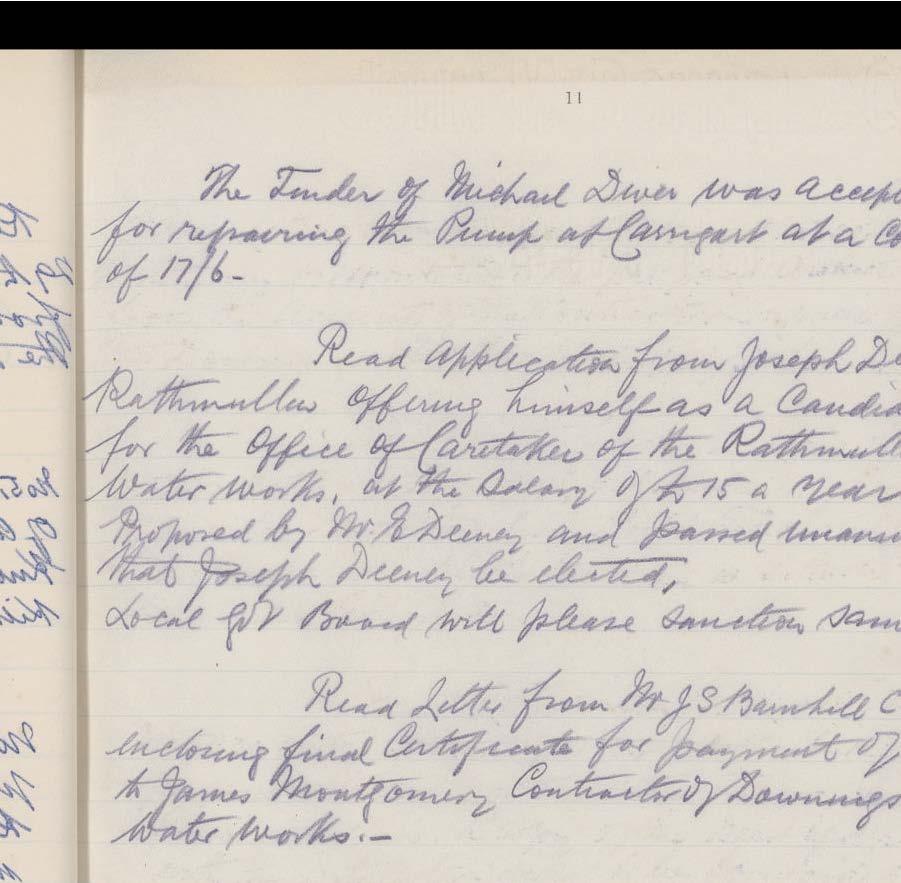 11
The Tender of Michael Diver was accep
for repairing the Pump at Carrigart at a Co
of 17/6 -
Read application from Joseph De
Rathmullen offering himself as a Candid
for the Office of Caretaker of the Rathmull
Water works, at the Salary of £15 a year
Proposed by Mr. E Deeney and passed unani
that Joseph Deeney be elected,
Local Govt Board will please sanction sam
Read Letter from Mr J S Barnhill C
enclosing final Certificate for payment of
to James Montgomery Contractor of Downings
Water works. -